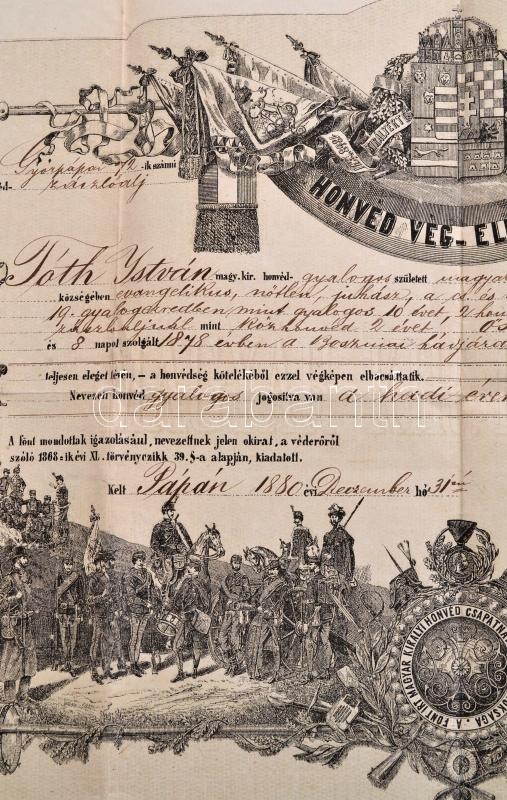 HONVÉD VÉG-EL
KIRÁLYÉRT
Győrpápai 72 -ik számú
zászlóalj
Tóth István magy. kir. honvéd- gyalogos született magyar
községében evangelikus, nőtlen, juhász, a cs. és
19. gyalogezredben mint gyalogos 10 évet, 2 hon
zászlóaljnál mint közhonvéd 2 évet
és 8 napot szolgált 1878 évben a Boszniai
teljesen eleget tévén, – a honvédség kötelékéből ezzel végképen elbocsáttatik.
Nevezett honvéd gyalogos jogositva van a hadi érem
A fönt mondottak igazolásául, nevezettnek jelen okirat, a véderőről
szóló 1868-ik évi XL. törvényczikk 39. §-a alapján, kiadatott.
Kelt Pápán 1880 évi Deczember hó 31 én
A FÖNT INT MAGYAR KIRÁLYI HONVÉD CSAPATNA
darabanth